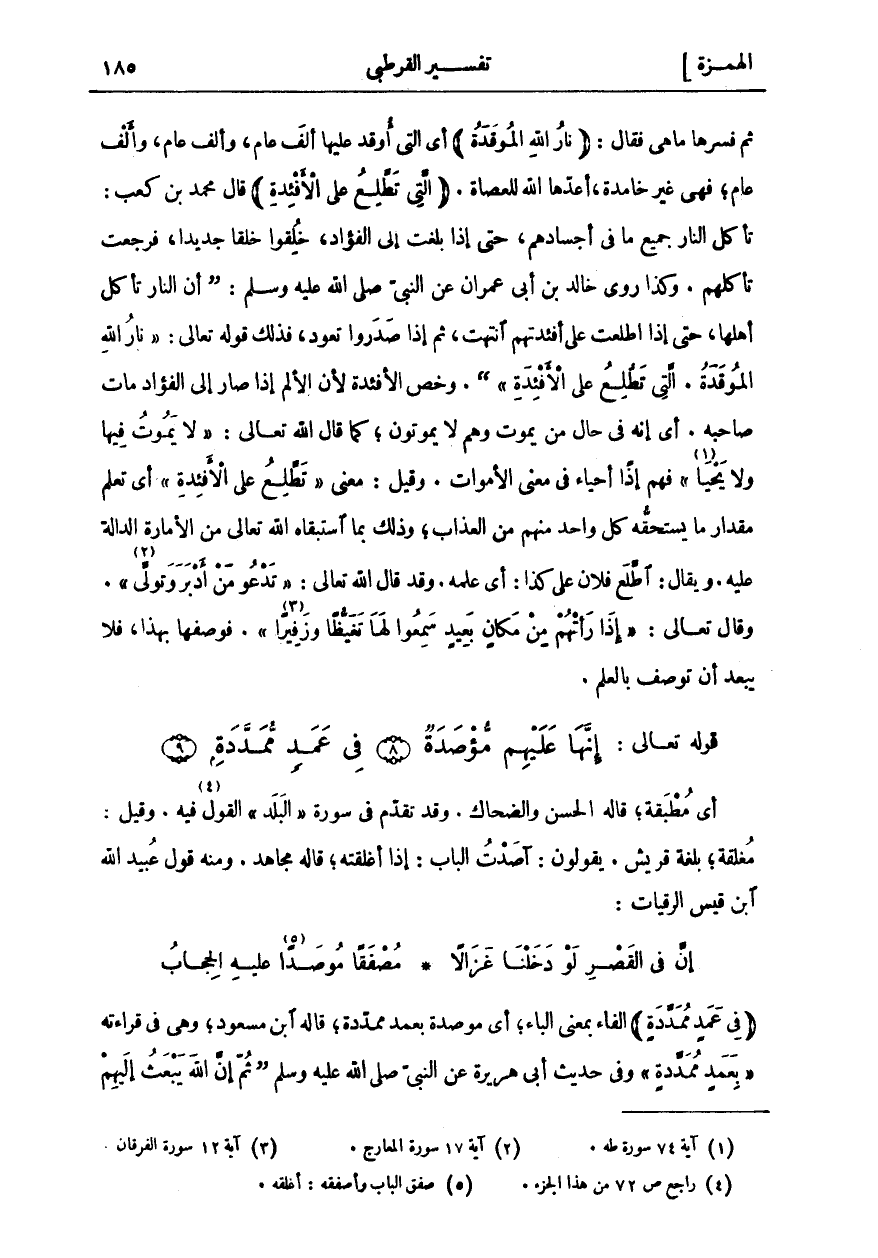 الهمزة ] تفسير القرطبى ١٨٥
ثم فسرها ماهى فقال : ﴿ نارُ اللهِ المُوقَدَةُ ﴾ أى التى أُوقد عليها ألفَ عام، وألف عام، وأَلْف
عام؛ فهى غير خامدة، أعدّها الله للعصاة . ﴿ الَّتِى تَطَّلِعُ على الْأَفْئِدةِ ﴾ قال محمد بن كعب :
تأكل النار جميع ما فى أجسادهم، حتى إذا بلغت إلى الفؤاد، خُلِقوا خلقا جديدا، فرجعت
تأكلهم . وكذا روى خالد بن أبى عمران عن النبىّ صلى الله عليه وسلم : ” أن النار تأكل
أهلها، حتى إذا اطلعت على أفئدتهم ٱنتهت، ثم إذا صَدَروا تعود، فذلك قوله تعالى : « نارُ اللهِ
المُوقَدَةُ . الَّتِى تَطَّلِعُ على الْأَفْئِدَةِ » “ . وخص الأفئدة لأن الألم إذا صار إلى الفؤاد مات
صاحبه . أى إنه فى حال من يموت وهم لا يموتون ؛ كما قال الله تعالى : « لا يَمُوتُ فِيها
ولا يَحْيَا (١) » فهم إذًا أحياء فى معنى الأموات . وقيل : معنى « تَطَّلِعُ على الْأَفْئِدةِ » أى تعلم
مقدار ما يستحقُّه كل واحد منهم من العذاب؛ وذلك بما ٱستبقاه الله تعالى من الأمارة الدالة
عليه . ويقال : ٱطَّلَع فلان على كذا : أى علمه . وقد قال الله تعالى : « تَدْعُو مَنْ أَدْبَرَ وَتَوَلَّى (٢) » .
وقال تعالى : « إِذَا رَأَتْهُمْ مِنْ مَكانٍ بَعِيدٍ سَمِعُوا لَهَا تَغَيُّظًا وزَفِيرًا (٣) » . فوصفها بهذا، فلا
يبعد أن توصف بالعلم .
قوله تعالى : إِنَّهَا عَلَيْهِم مُّؤْصَدَةٌ ۝٨ فِى عَمَدٍ مُّمَدَّدَةٍ ۝٩
أى مُطْبَقة؛ قاله الحسن والضحاك . وقد تقدّم فى سورة « البَلَد » القول فيه (٤) . وقيل :
مُغلقة؛ بلغة قريش . يقولون : آصَدْتُ الباب : إذا أغلقته؛ قاله مجاهد . ومنه قول عُبيد الله
ٱبن قيس الرقيات :
إنّ فى القَصْرِ لَوْ دَخَلْنَا غَزَالًا * مُصْفَقًا مُوصَدًا (٥) عليهِ الحِجابُ
﴿ فِى عَمَدٍ مُمَدَّدَةٍ ﴾ الفاء بمعنى الباء؛ أى موصدة بعمد ممدّدة؛ قاله ٱبن مسعود؛ وهى فى قراءته
« بِعَمَدٍ مُمَدَّدةٍ » وفى حديث أبى هريرة عن النبىّ صلى الله عليه وسلم ” ثُمّ إنَّ اللهَ يَبْعَثُ إلَيهِمْ
(١) آية ٧٤ سورة طه . (٢) آية ١٧ سورة المعارج . (٣) آية ١٢ سورة الفرقان .
(٤) راجع ص ٧٢ من هذا الجزء . (٥) صفق الباب وأصفقه : أغلقه .